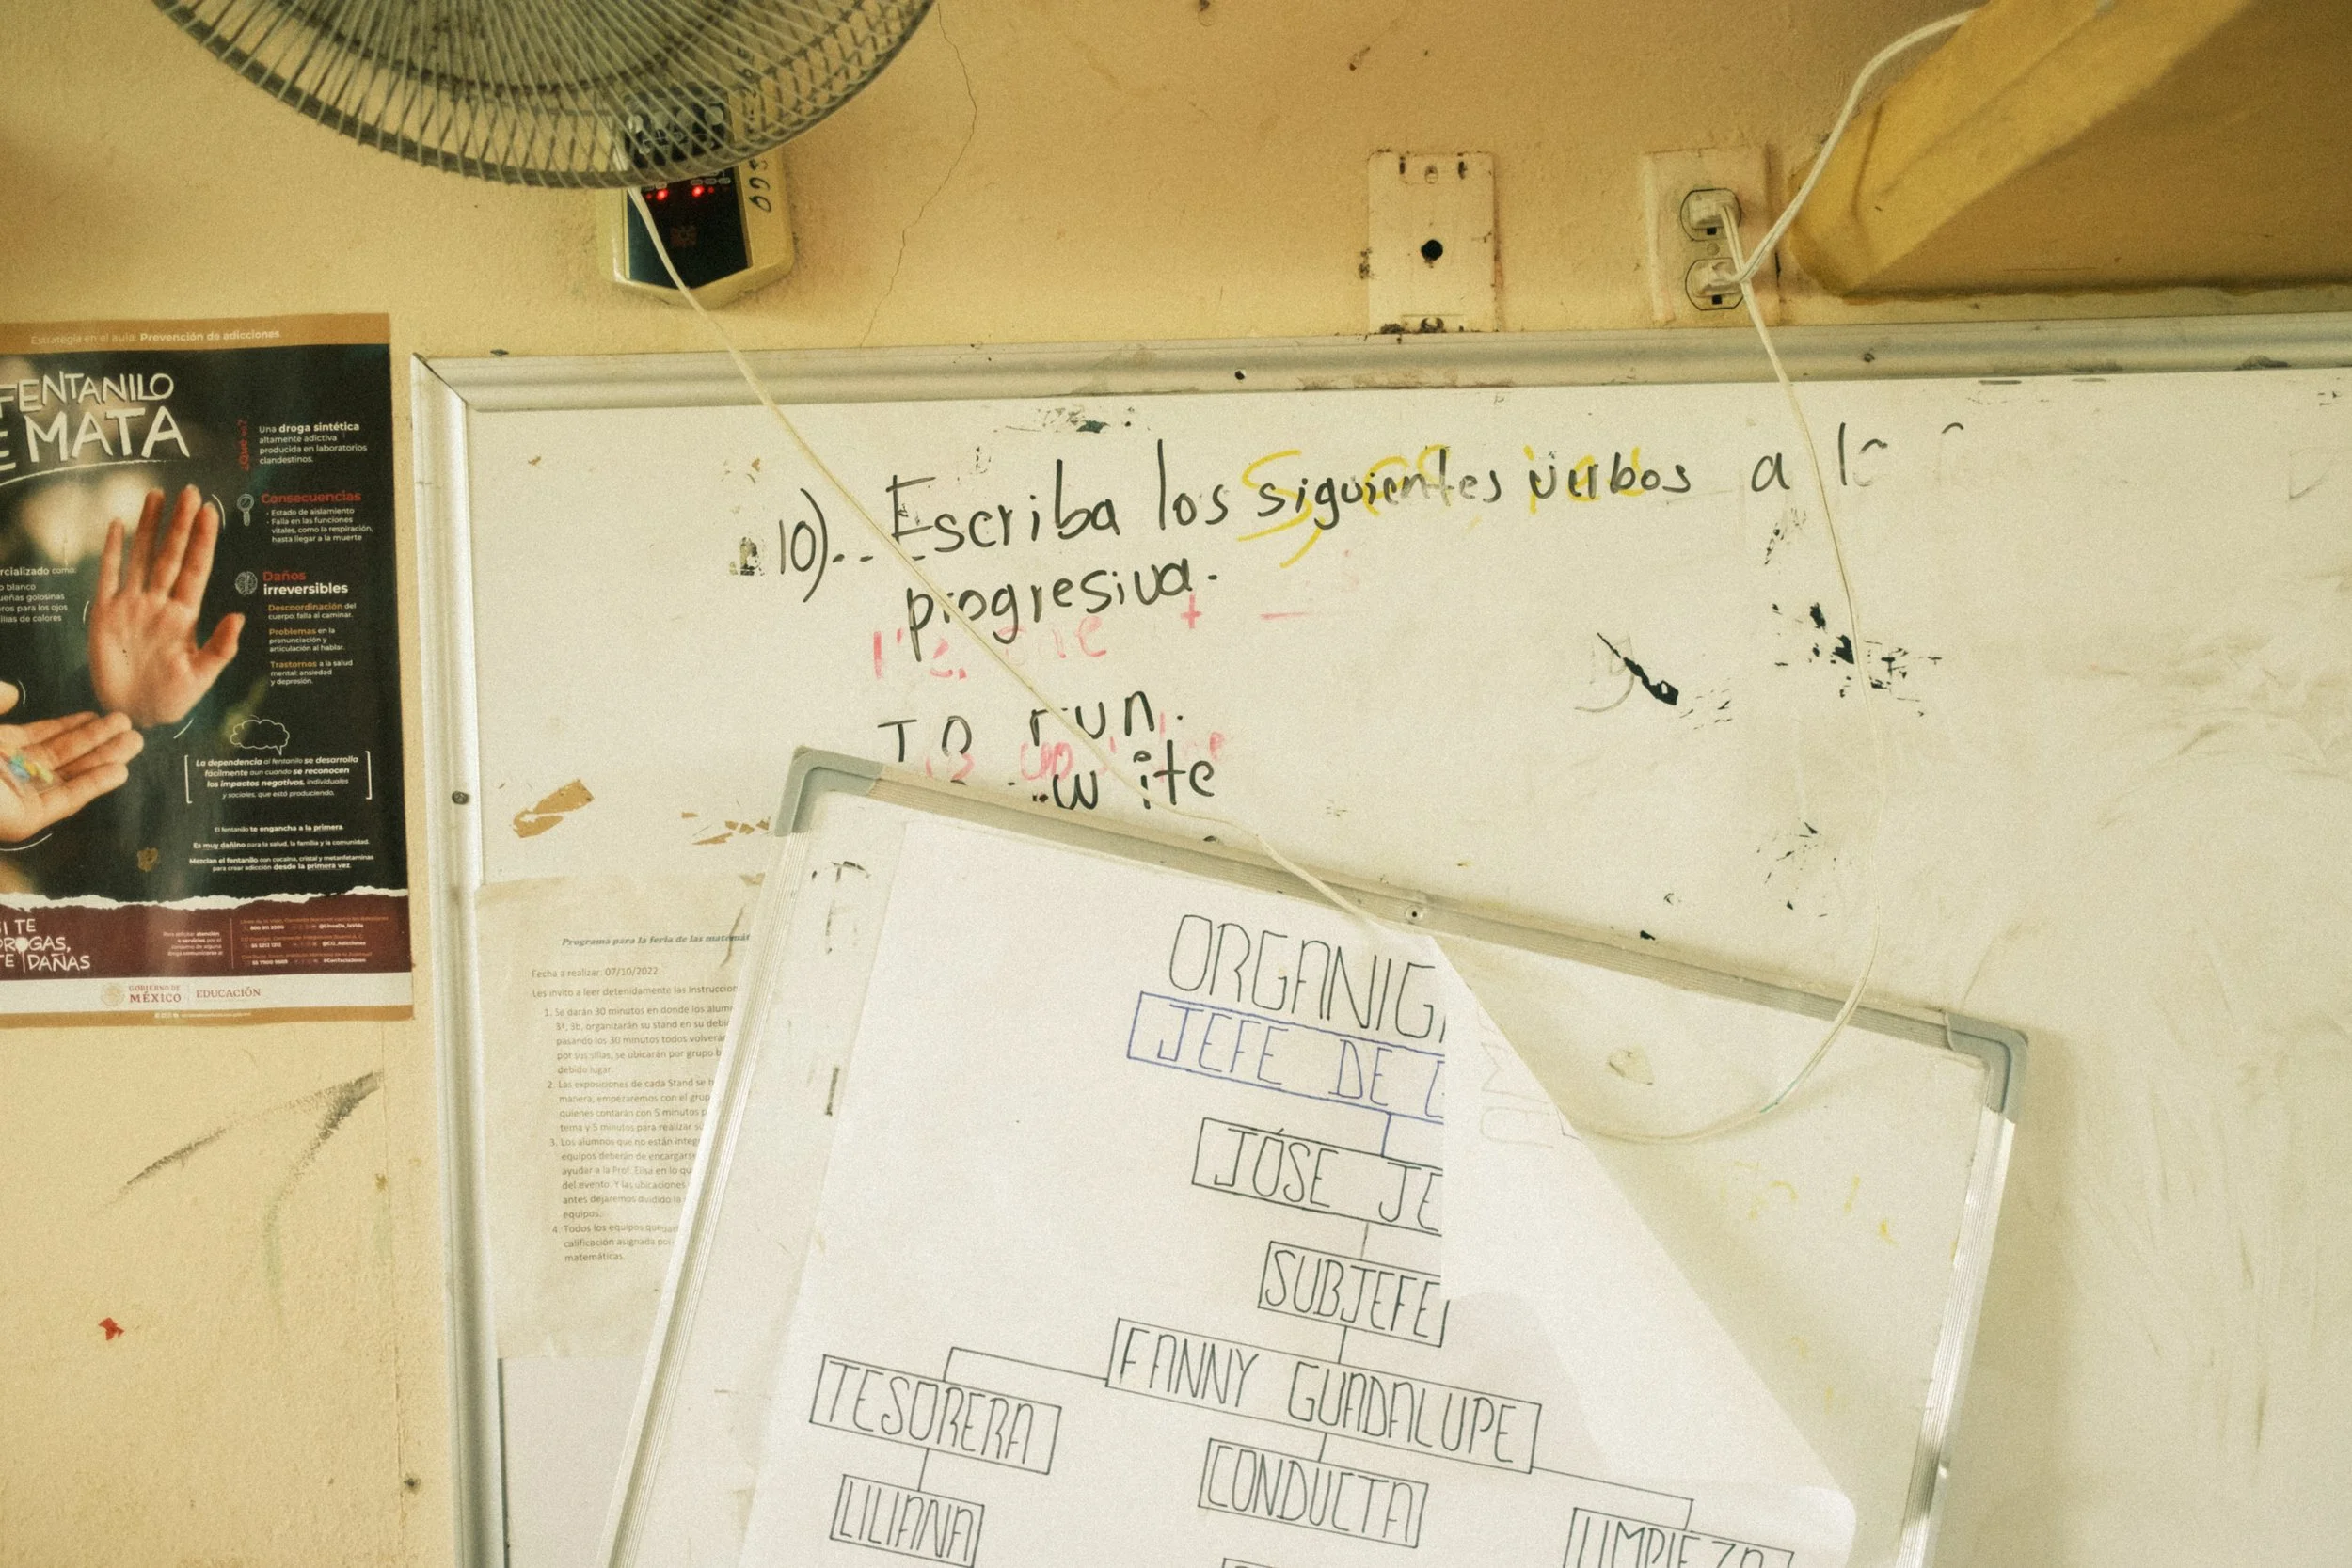 Estrategia en el aula: Prevención de adicciones
FENTANILO
MATA
¿Qué es?
Una droga sintética
altamente adictiva
producida en laboratorios
clandestinos.
Consecuencias
- Estado de aislamiento
- Falla en las funciones
vitales, como la respiración,
hasta llegar a la muerte
Daños
irreversibles
Descoordinación del
cuerpo: falla al caminar.
Problemas en la
pronunciación y
articulación al hablar.
Trastornos a la salud
mental: ansiedad
y depresión.
rcializado como:
o blanco
ueñas golosinas
ros para los ojos
illas de colores
La dependencia al fentanilo se desarrolla
fácilmente aun cuando se reconocen
los impactos negativos, individuales
y sociales, que está produciendo.
El fentanilo te engancha a la primera
Es muy dañino para la salud, la familia y la comunidad.
Mezclan el fentanilo con cocaína, cristal y metanfetaminas
para crear adicción desde la primera vez
SI TE
DROGAS,
TE DAÑAS
GOBIERNO DE
MÉXICO
EDUCACIÓN
10)... Escriba los siguientes verbos a
progresiva.
To run.
Programa para la feria de las matemát
Fecha a realizar: 07/10/2022
Les invito a leer detenidamente las Instruccion
1. Se darán 30 minutos en donde los alum
3ª, 3b, organizarán su stand en su debi
pasando los 30 minutos todos volverá
por sus sillas, se ubicarán por grupo
debido lugar.
2. Las exposiciones de cada Stand se h
manera, empezaremos con el grup
quienes contarán con 5 minutos p
tema y 5 minutos para realizar su
3. Los alumnos que no están integ
equipos deberán de encargarse
ayudar a la Prof. Elisa en lo qu
del evento. Y las ubicaciones
antes dejaremos dividido la
equipos.
4. Todos los equipos queda
calificación asignada por
matemáticas.
ORGANIG
JEFE DE
JÓSE JE
SUBJEFE
FANNY GUADALUPE
TESORERA
CONDUCTA
LILIANA
LIMPIEZA